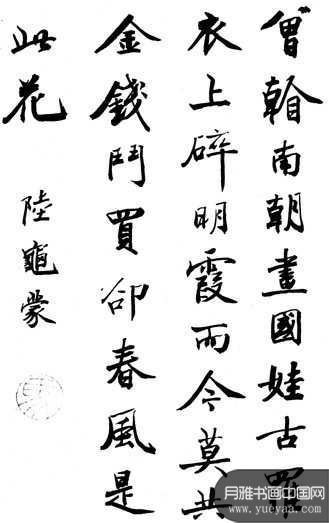 曾南朝畫國娃古羅
衣上碎明霞而今莫共
金錢鬥買卻春風是
此花
陸龜蒙
月雅书画中国网
www.yueyaa.com